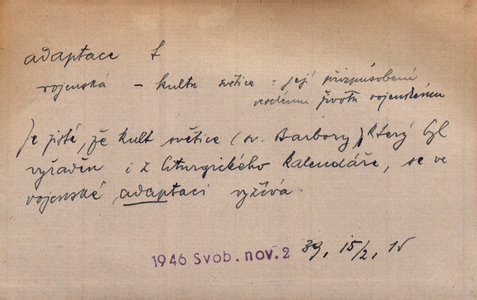 adaptace f
vojenská – kultu světice – její přizpůsobení
veselému životu vojenskému
Je jisté, že kult světice (sv. Barbory), který byl
vyřaděn i z liturgického kalendáře, se ve
vojenské adaptaci vyžívá.
1946 Svob. nov. 2 39, 15/2, 15